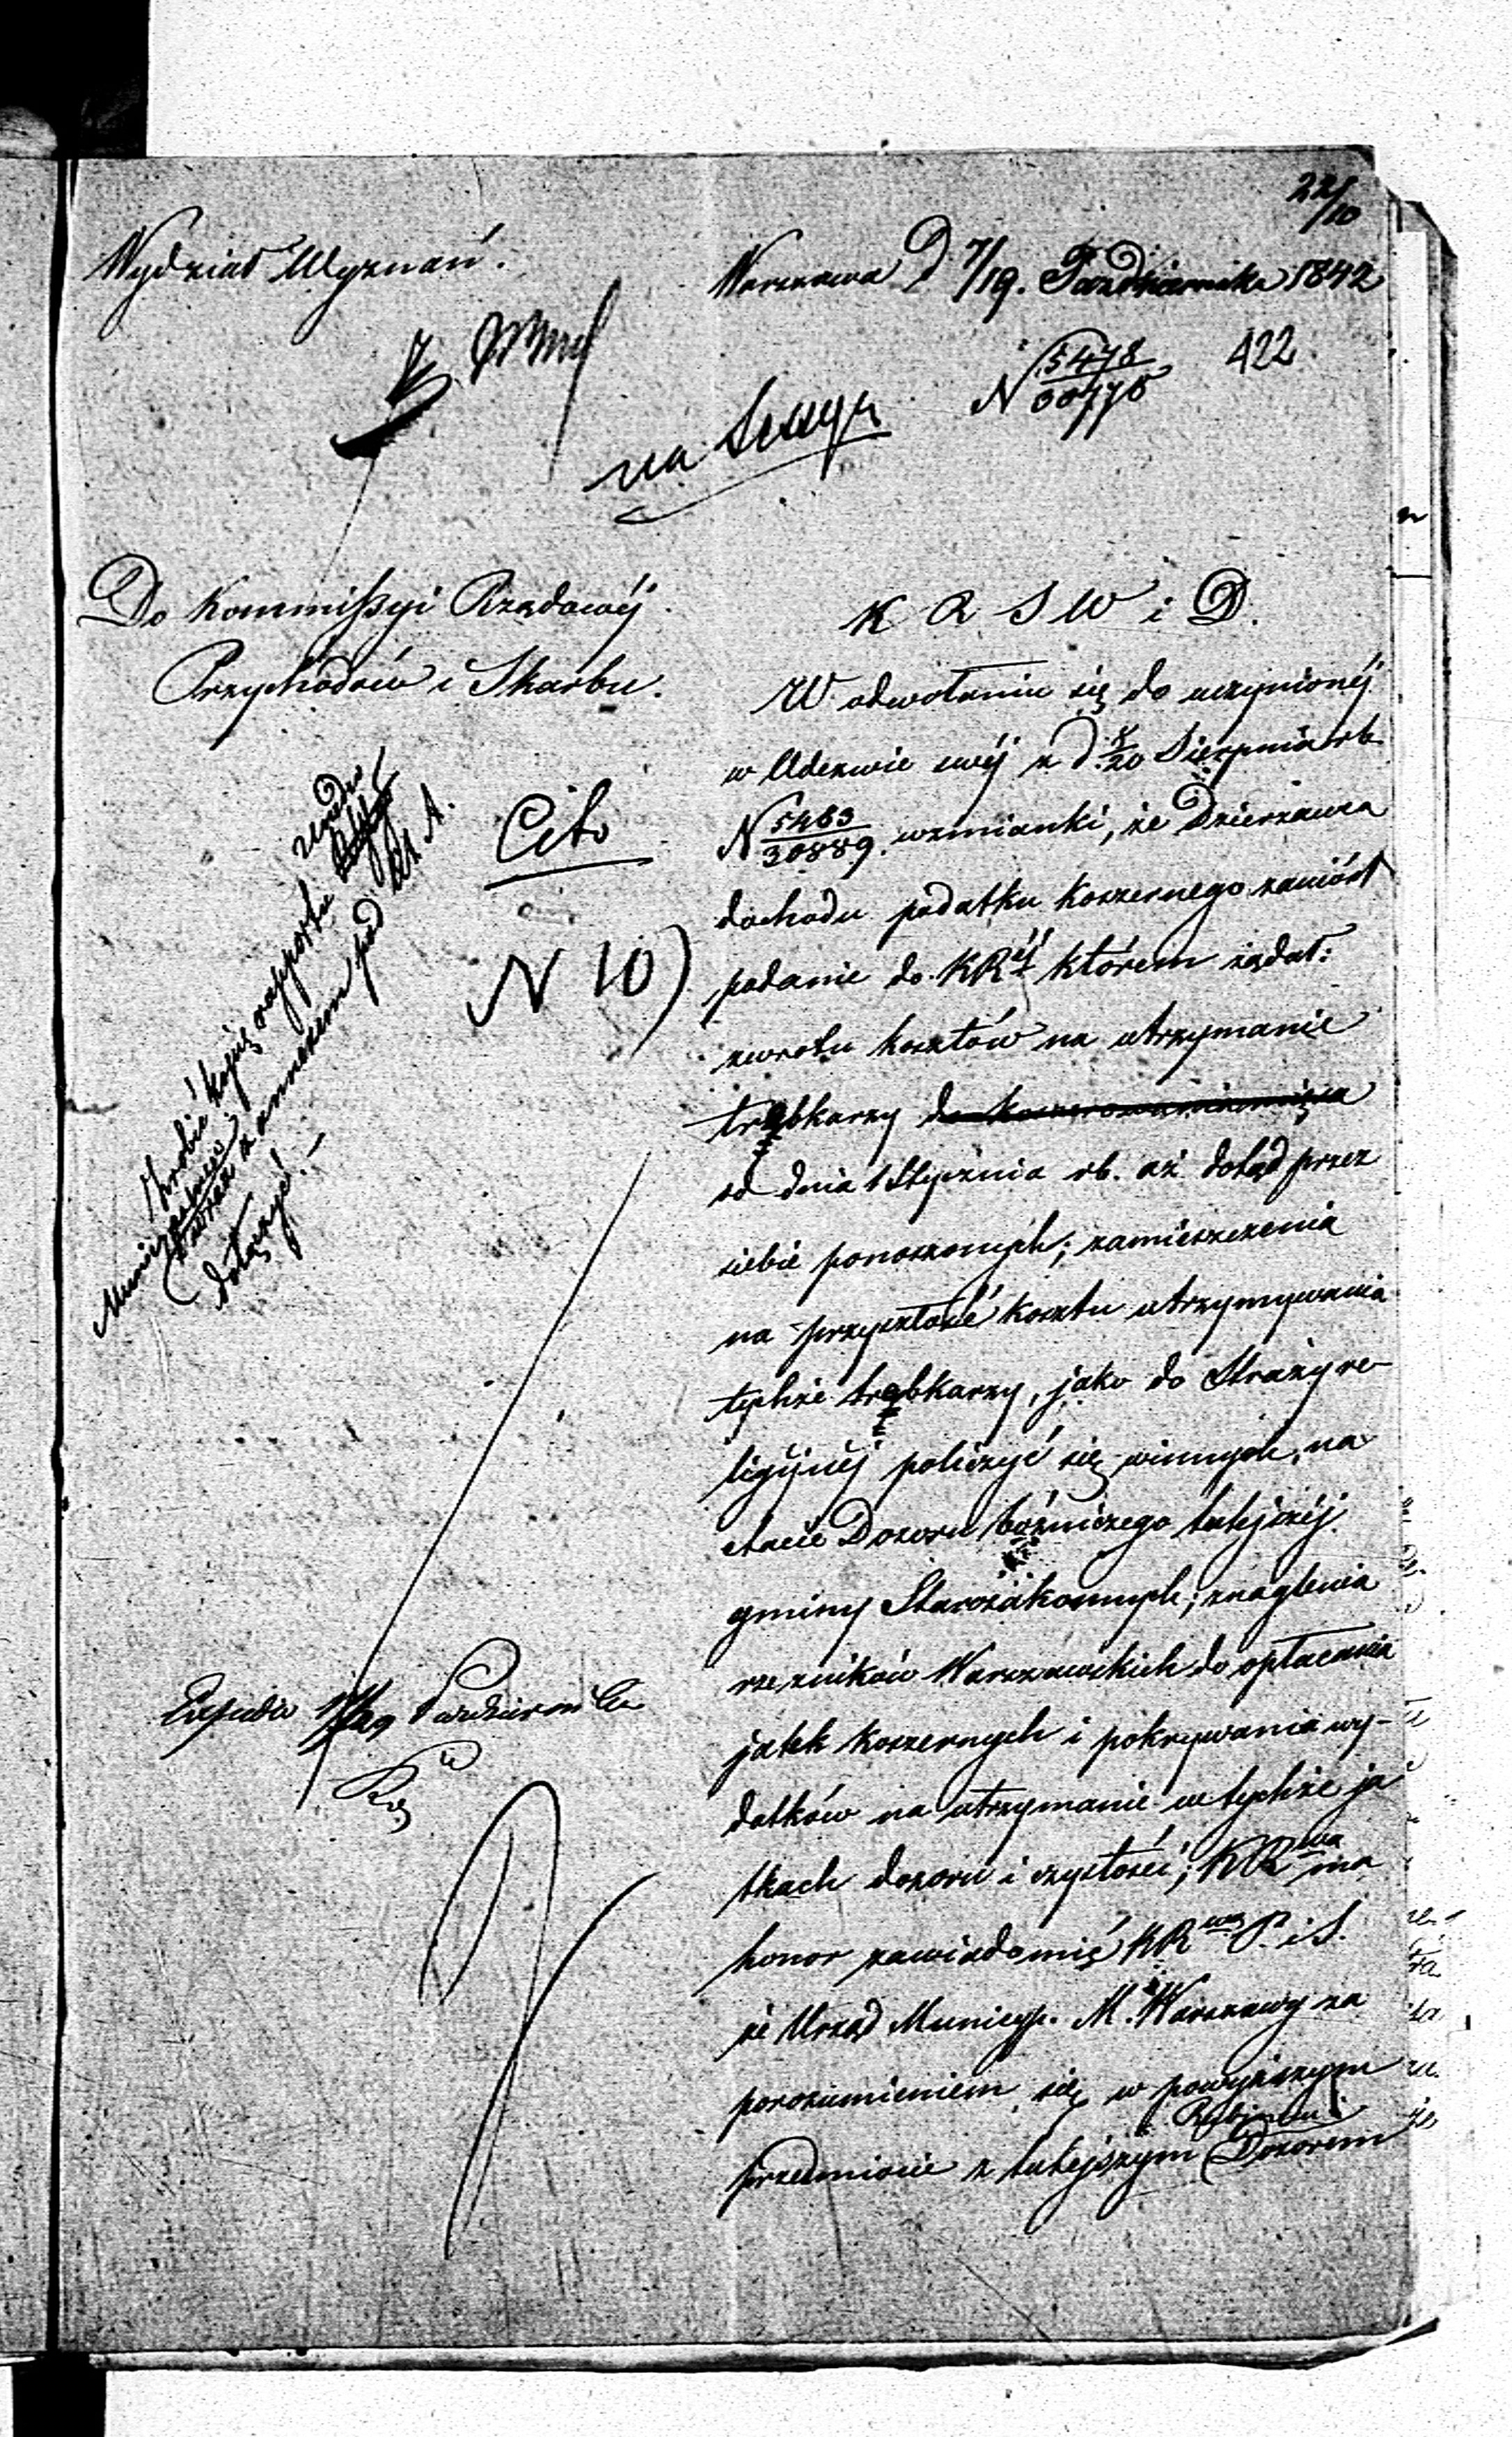 22/10
Wydział Wyznań.
Warszawa D 7/19. Października 1842
N 5478/ 422
na Sessyą
Do Kommissyi Rządowéj
Przychodów i Skarbu.
K R S W i D.
Cito
N 10)
Zrobić kopię rapportu Urzędu
Municypalnego
wraz z annexem pod Lit A.
dołączyć! –
W odwołaniu się do uczynionéj
w Odezwie swéj z d. 8/20 Sierpnia rb.
N 5463/30889. wzmianki, że Dzierżawca
dochodu podatku koszernego zaniósł
podanie do KRéj którem żądał:
zwrotu kosztów na utrzymanie
trębkarzy
od dnia 1 Stycznia rb. aż dotąd przez
siebie ponoszonych; zamieszczenia
na przyszłość kosztu utrzymywania
tychże trębkarzy, jako do Straży re-
ligijnéj policzyć się winnych, na
etacie Dozoru bóżniczego tutejszéj
gminy Starozakonnych; znaglenia
rzezników Warszawskich do opłacania
jatek koszernych i pokrywania wy-
datków na utrzymanie w tychże ja
tkach dozoru i czystości; KRwa ma
honor zawiadomić KRwą P. i S.
że Urząd Municyp. M. Warszawy za
porozumieniem się w powyższym
Rabinem i
przedmiocie z tutejszym Dozorem
Expedio 17/29 Października